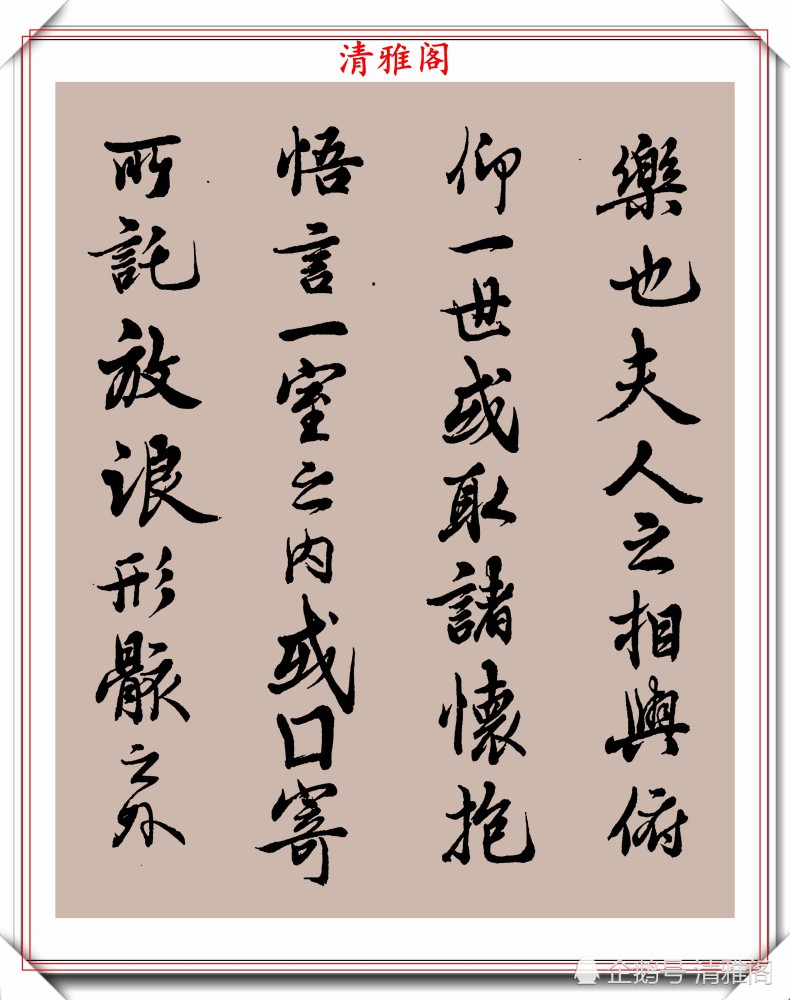 清雅阁
樂也夫人之相與俯
仰一世或取諸懷抱
悟言一室之内或口寄
所託放浪形骸之外
企鹅号 清雅阁